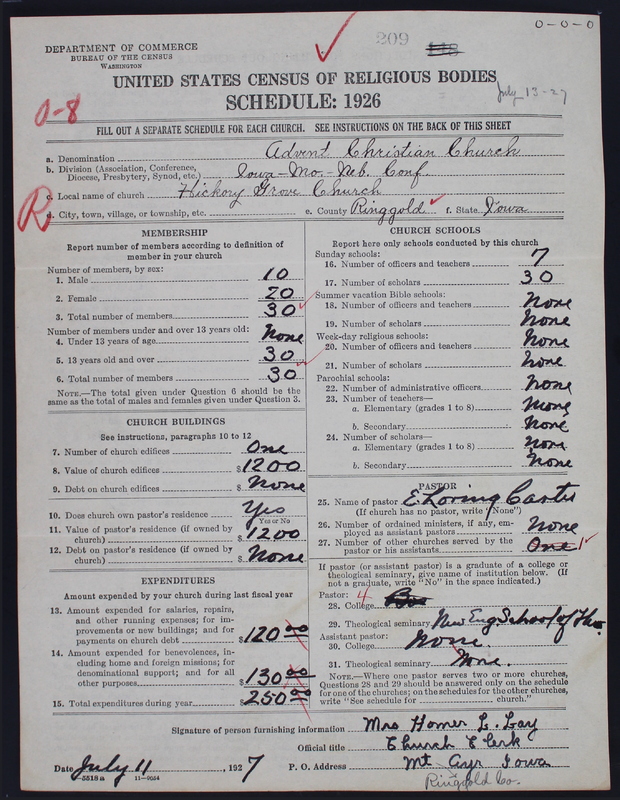 0-0-0
209
DEPARTMENT OF COMMERCE
BUREAU OF THE CENSUS
WASHINGTON
UNITED STATES CENSUS OF RELIGIOUS BODIES
July 13-27
SCHEDULE: 1926
0-8
FILL OUT A SEPARATE SCHEDULE FOR EACH CHURCH. SEE INSTRUCTIONS ON THE BACK OF THIS SHEET
a. Denomination Advent Christian Church
b. Division (Association, Conference, Diocese, Presbytery, Synod, etc.) Iowa-Mo.-Neb. Conf
c. Local name of church Hickory Grove Church
R
d. City, town, village, or township, etc. e. County Ringgold f. State Iowa
MEMBERSHIP
Report number of members according to definition of
member in your church
Number of members, by sex:
1. Male 10
2. Female 20
3. Total number of members 30
Number of members under and over 13 years old:
4. Under 13 years of age None
5. 13 years old and over 30
6. Total number of members 30
NOTE.—The total given under Question 6 should be
same as the total of males and females given under Question 3.
CHURCH BUILDINGS
See instructions, paragraphs 10 to 12
7. Number of church edifices One
8. Value of church edifices $1200
9. Debt on church edifices $None
10. Does church own pastor's residence Yes
Yes or No
11. Value of pastor's residence (if owned by
church) $1200
12. Debt on pastor's residence (if owned by
church) $None
EXPENDITURES
Amount expended by your church during last fiscal year
13. Amount expended for salaries, repairs,
and other running expenses; for im-
provements or new buildings; and for
payments on church debt $120 00
14. Amount expended for benevolences, in-
cluding home and foreign missions; for
denominational support; and for all
other purposes $130 00
15. Total expenditures during year $250 00
CHURCH SCHOOLS
Report here only schools conducted by this church
Sunday schools:
16. Number of officers and teachers 7
17. Number of scholars 30
Summer vacation Bible schools:
18. Number of officers and teachers None
19. Number of scholars None
Week-day religious schools:
20. Number of officers and teachers None
21. Number of scholars None
Parochial schools:
22. Number of administrative officers None
23. Number of teachers—
a. Elementary (grades 1 to 8) None
b. Secondary None
24. Number of scholars—
a. Elementary (grades 1 to 8) None
b. Secondary None
PASTOR
25. Name of pastor E Loring Carter
(If church has no pastor, write "None")
26. Number of ordained ministers, if any, em-
ployed as assistant pastors None
27. Number of other churches served by the
pastor or his assistants One 1
If pastor (or assistant pastor) is a graduate of a college or
theological seminary, give name of institution below. (If
not a graduate, write "No" in the space indicated.)
Pastor: 4
28. College
29. Theological seminary New Eng School of Theo.
Assistant pastor:
30. College None
31. Theological seminary None.
NOTE.—Where one pastor serves two or more churches,
Questions 28 and 29 should be answered only on the schedule
for one of the churches; on the schedules for the other churches,
write "See schedule for church."
Signature of person furnishing information Mrs Homer L. Lay
Official title Church Clerk
Date July 11, 1927 P. O. Address Mt Ayr Iowa
5518a 11-9054
Ringgold Co.